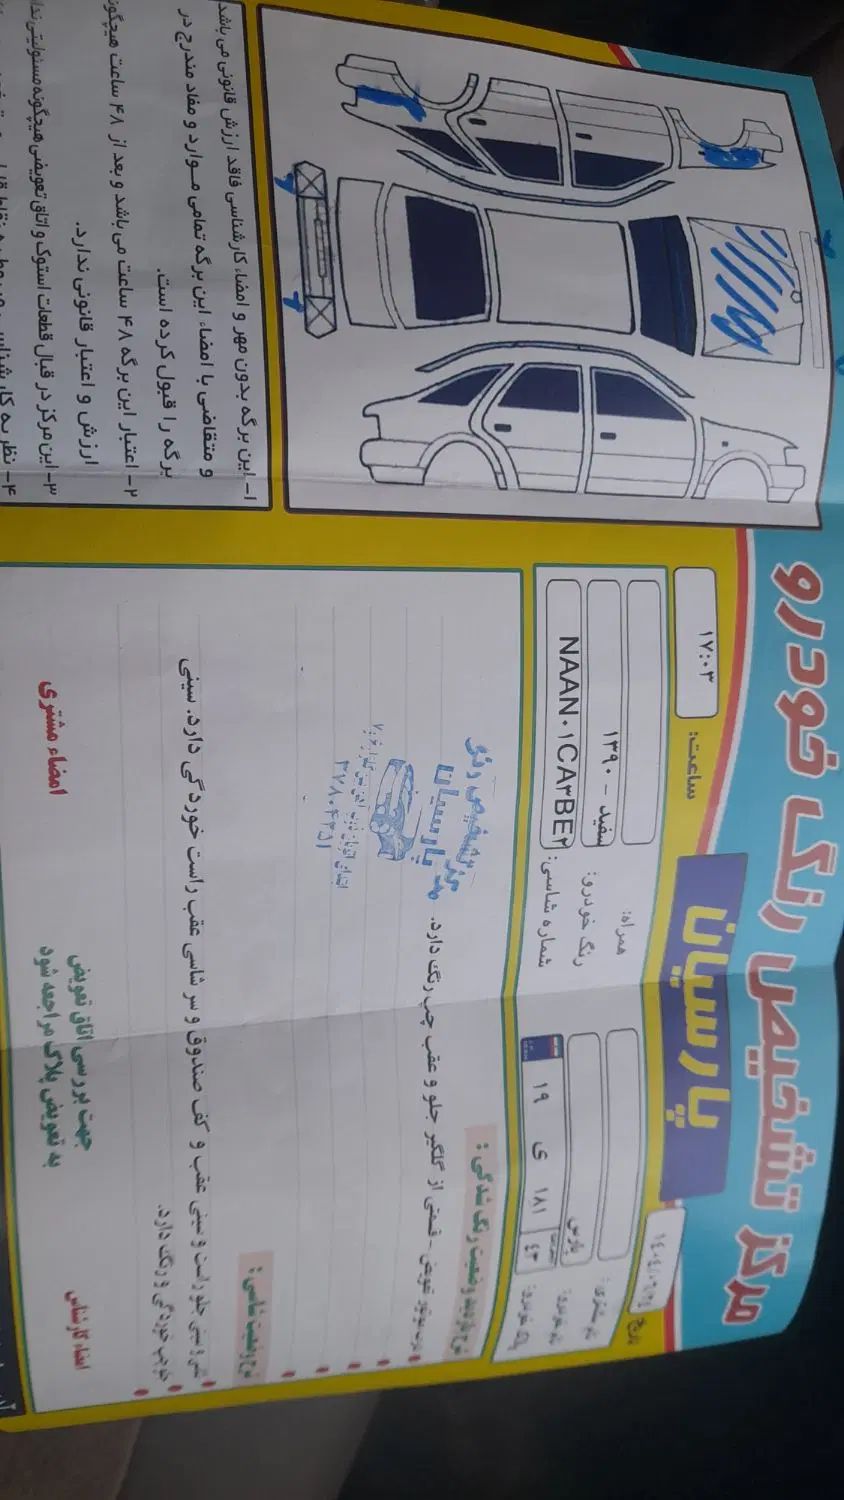 مرکز تشخیص رنگ خودرو
پارسیان
ساعت:
۱۷:۰۳
همراه:
رنگ خودرو:
سفید - ۱۳۹۰
شماره شاسی:
NAAN۰۱CA۳BE۲
تاریخ
نام مشتری:
نام خودرو:
پارس
پلاک خودرو:
۱۹ ی ۱۸۱
۴۳
شرح بازدید وضعیت رنگ شدگی:
درب موتور تعویض - قسمتی از گلگیر جلو و عقب چپ رنگ دارد.
مرکز تشخیص رنگ
پارسیان
شرح وضعیت شاسی:
سینی جلو راست و سینی عقب و کف صندوق و سر شاسی عقب راست خوردگی دارد. سینی
جلو چپ خوردگی و رنگ دارد.
جهت بررسی اتاق تعویض
به تعویض پلاک مراجعه شود
امضاء کارشناس
امضاء مشتری
۱- این برگه بدون مهر و امضاء کارشناسی فاقد ارزش قانونی می باشد
و متقاضی با امضاء این برگه تمامی موارد و مفاد مندرج در
برگه را قبول کرده است.
۲- اعتبار این برگه ۴۸ ساعت می باشد و بعد از ۴۸ ساعت هیچگونه
ارزش و اعتبار قانونی ندارد.
۳- این مرکز در قبال قطعات استوک و اتاق تعویضی هیچگونه مسئولیتی ندارد
۴- نظریه کارشناسی